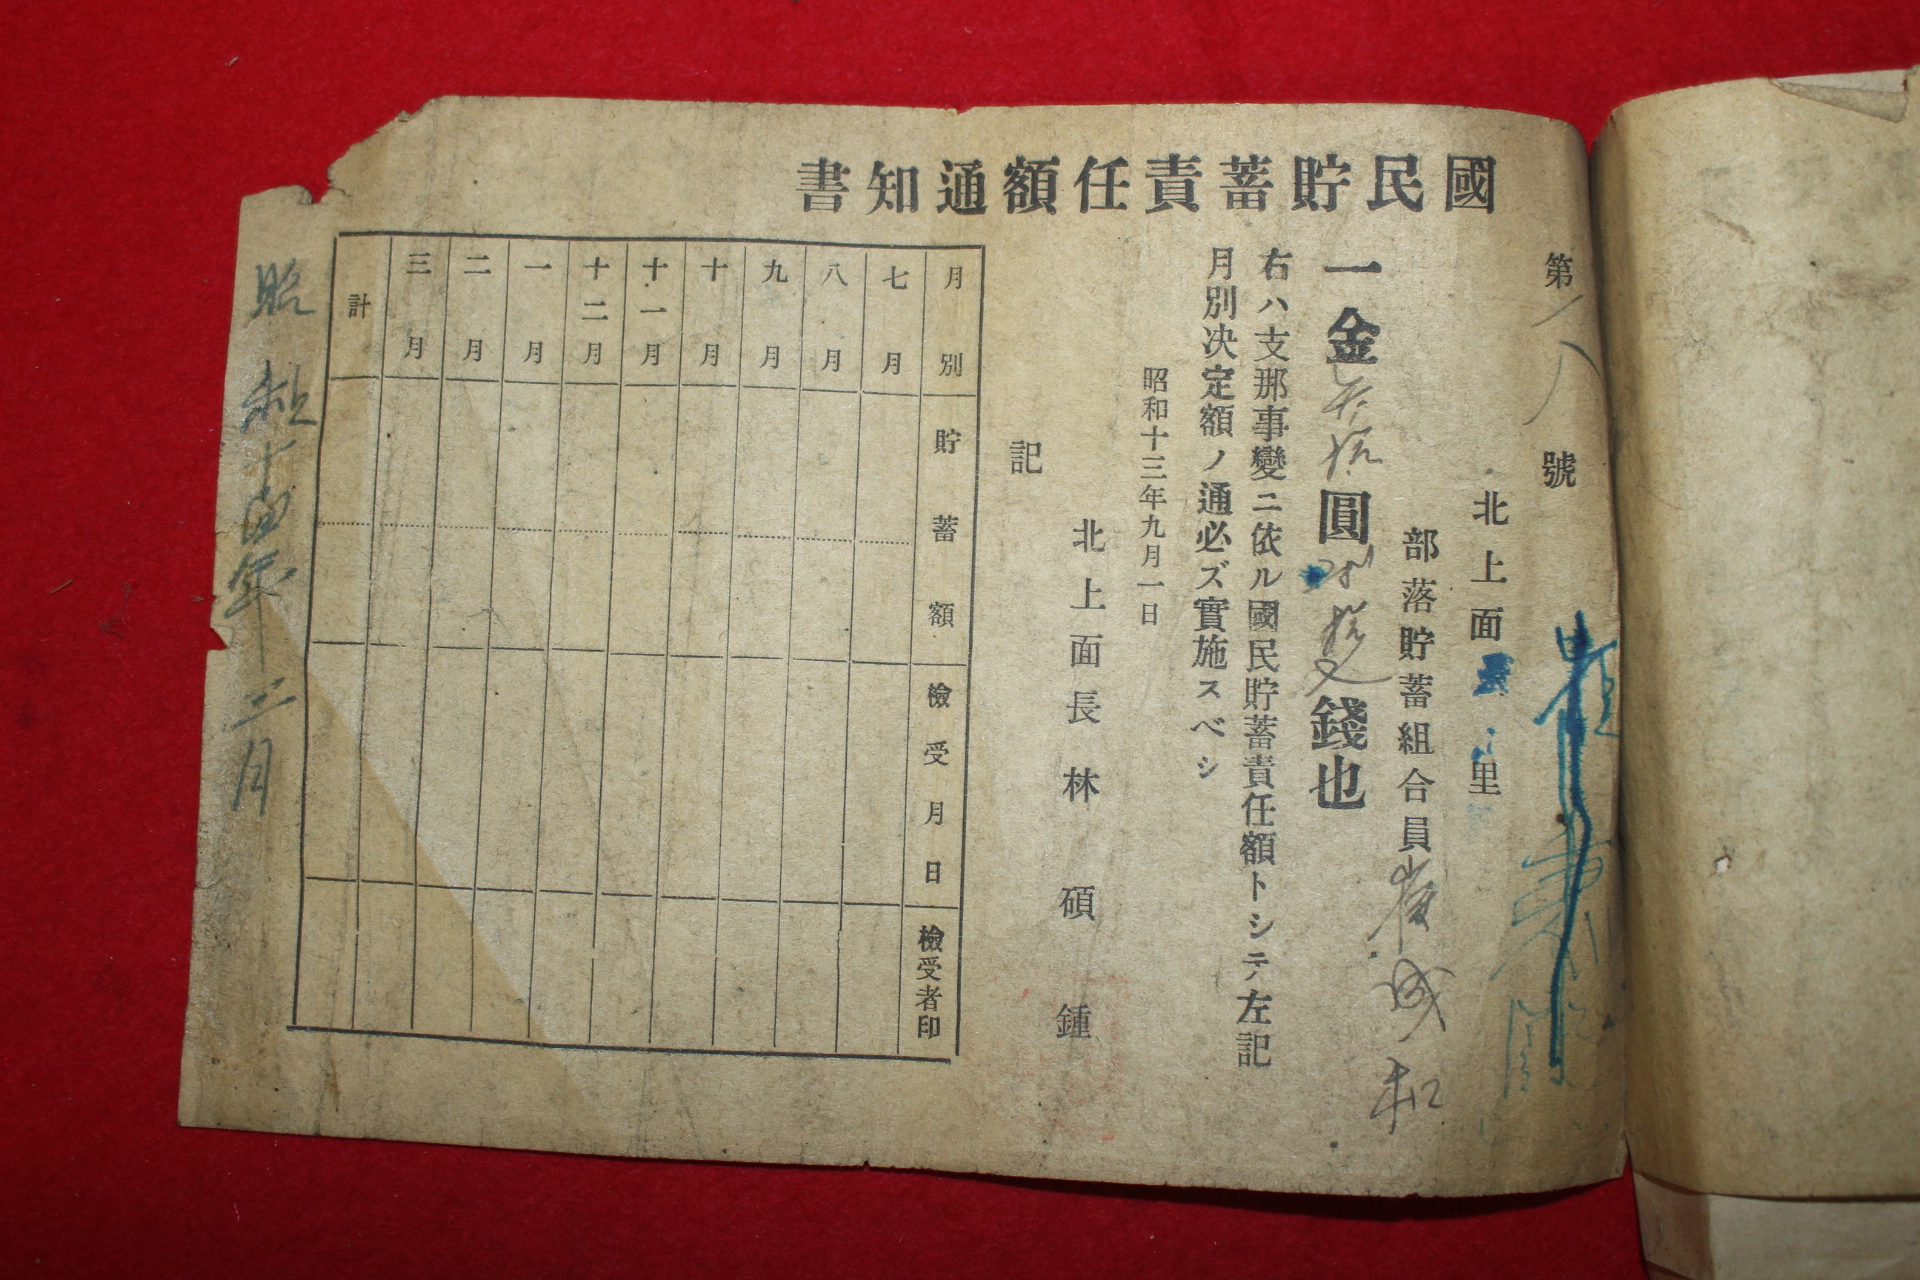 國民貯蓄責任額通知書
第 八 號
北上面 里
部落貯蓄組合員 崔成和
一金 拾 圓 拾 錢也
右ハ支那事變ニ依ル國民貯蓄責任額トシテ左記
月別決定額ノ通必ズ實施スベシ
昭和十三年九月一日
北上面長 林碩鍾
記
月別 貯蓄額 檢受月日 檢受者印
七月
八月
九月
十月
十一月
十二月
一月
二月
三月
計
昭和十四年二月